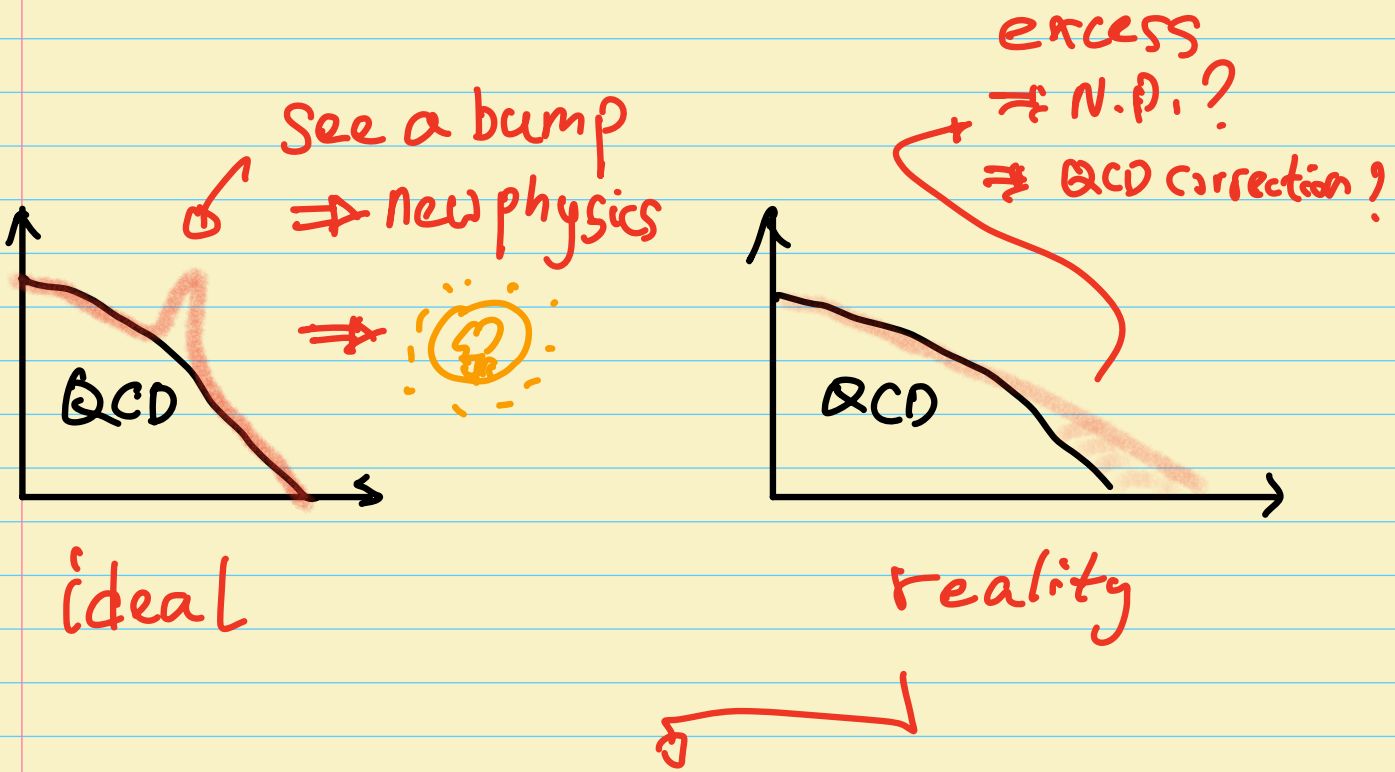 see a bump
⇒ new physics
⇒
QCD
ideal
excess
⇒ N.P.?
⇒ QCD correction?
QCD
reality